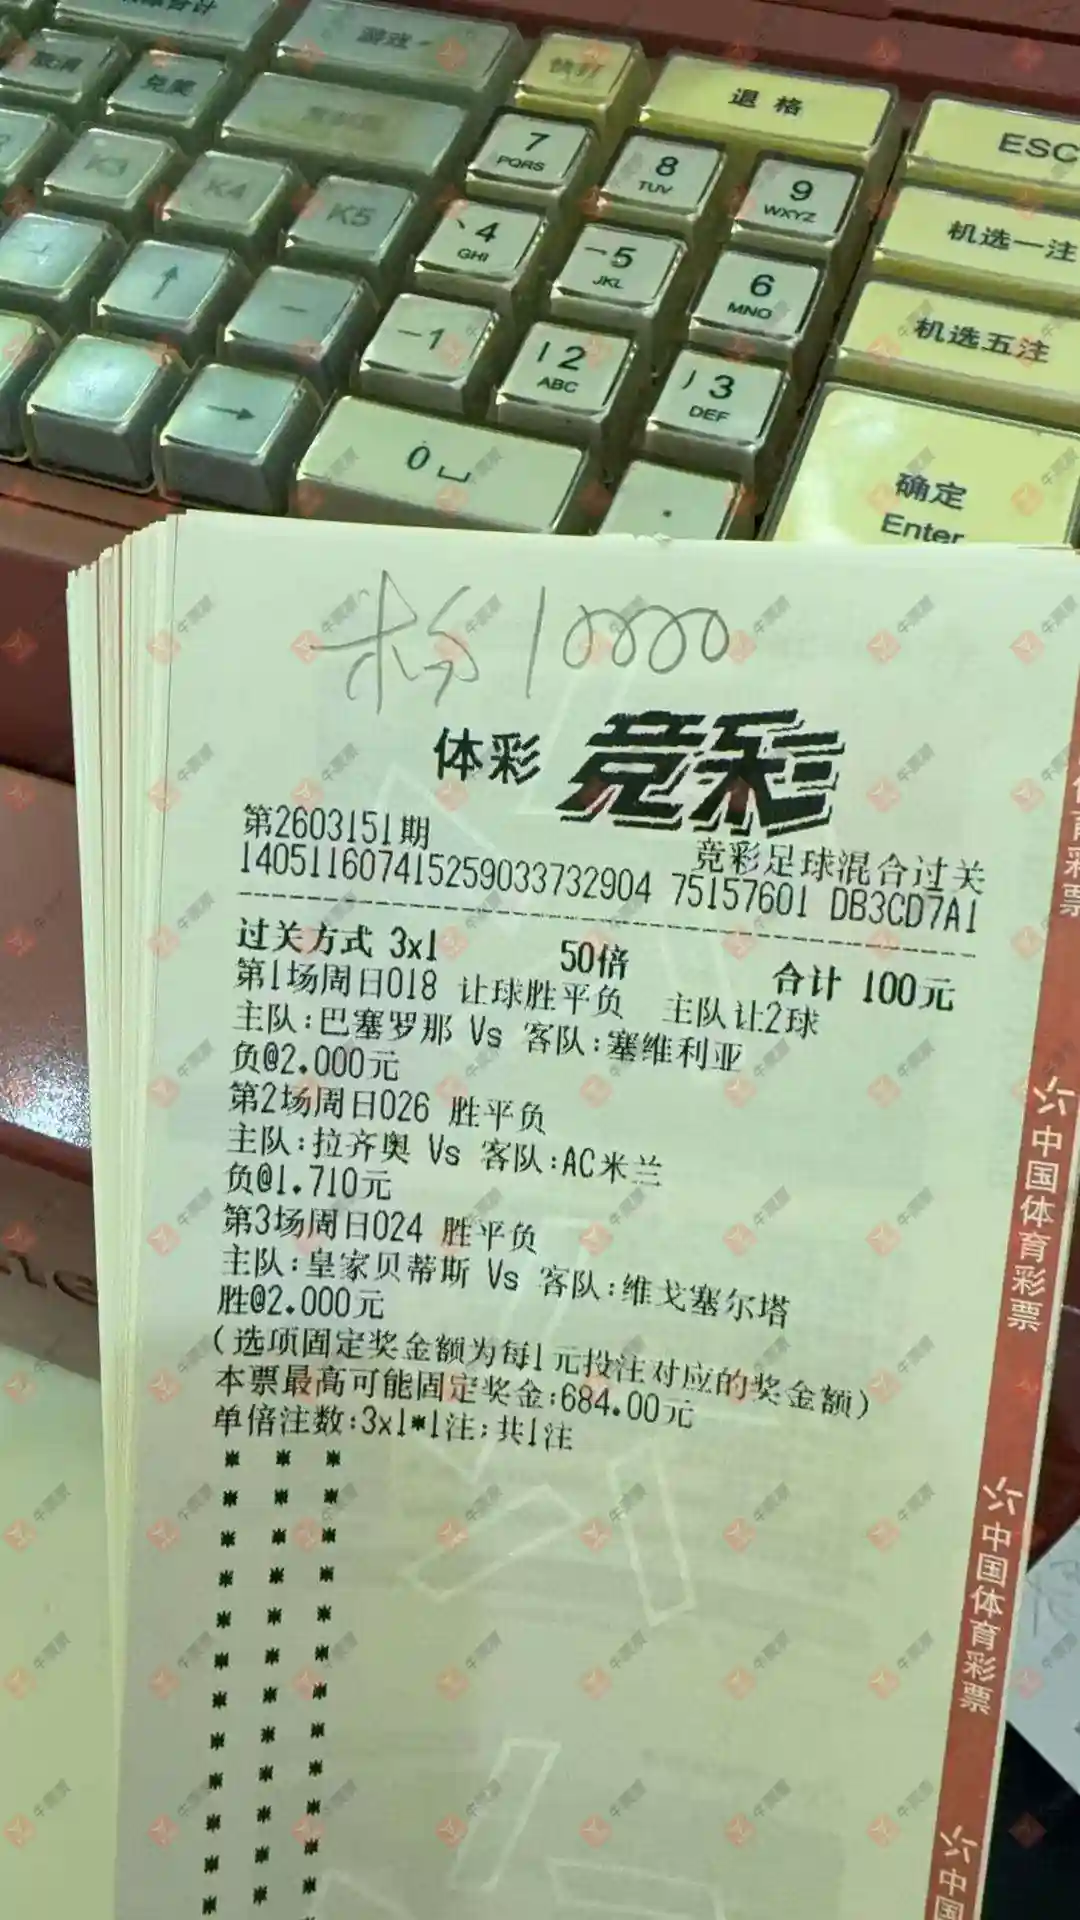 游戏
快打
退 格
ESC
兑奖
7
PQRS
8
TUV
9
WXYZ
K3
K4
K5
4
GHI
5
JKL
6
MNO
机选一注
1
2
ABC
3
DEF
机选五注
0
.
确定
Enter
10000
体彩 竞彩
第2603151期
竞彩足球混合过关
140511607415259033732904 75157601 DB3CD7A1
过关方式 3x1 50倍 合计 100元
第1场周日018 让球胜平负 主队让2球
主队:巴塞罗那 Vs 客队:塞维利亚
负@2.000元
第2场周日026 胜平负
主队:拉齐奥 Vs 客队:AC米兰
负@1.710元
第3场周日024 胜平负
主队:皇家贝蒂斯 Vs 客队:维戈塞尔塔
胜@2.000元
(选项固定奖金额为每1元投注对应的奖金额)
本票最高可能固定奖金:684.00元
单倍注数:3x1*1注;共1注
中国体育彩票
中国体育彩票